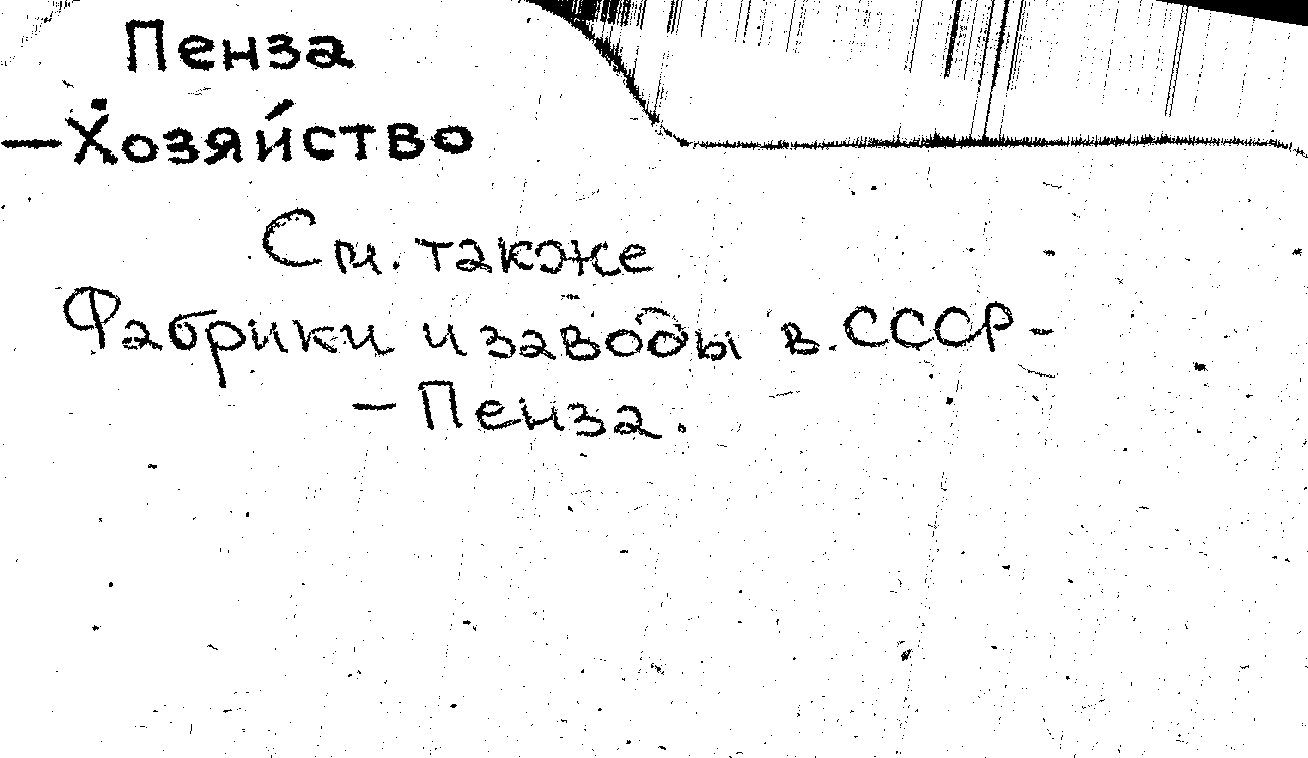 Пенза
—Хозяйство
См. также
Фабрики и заводы в. СССР-
— Пенза.